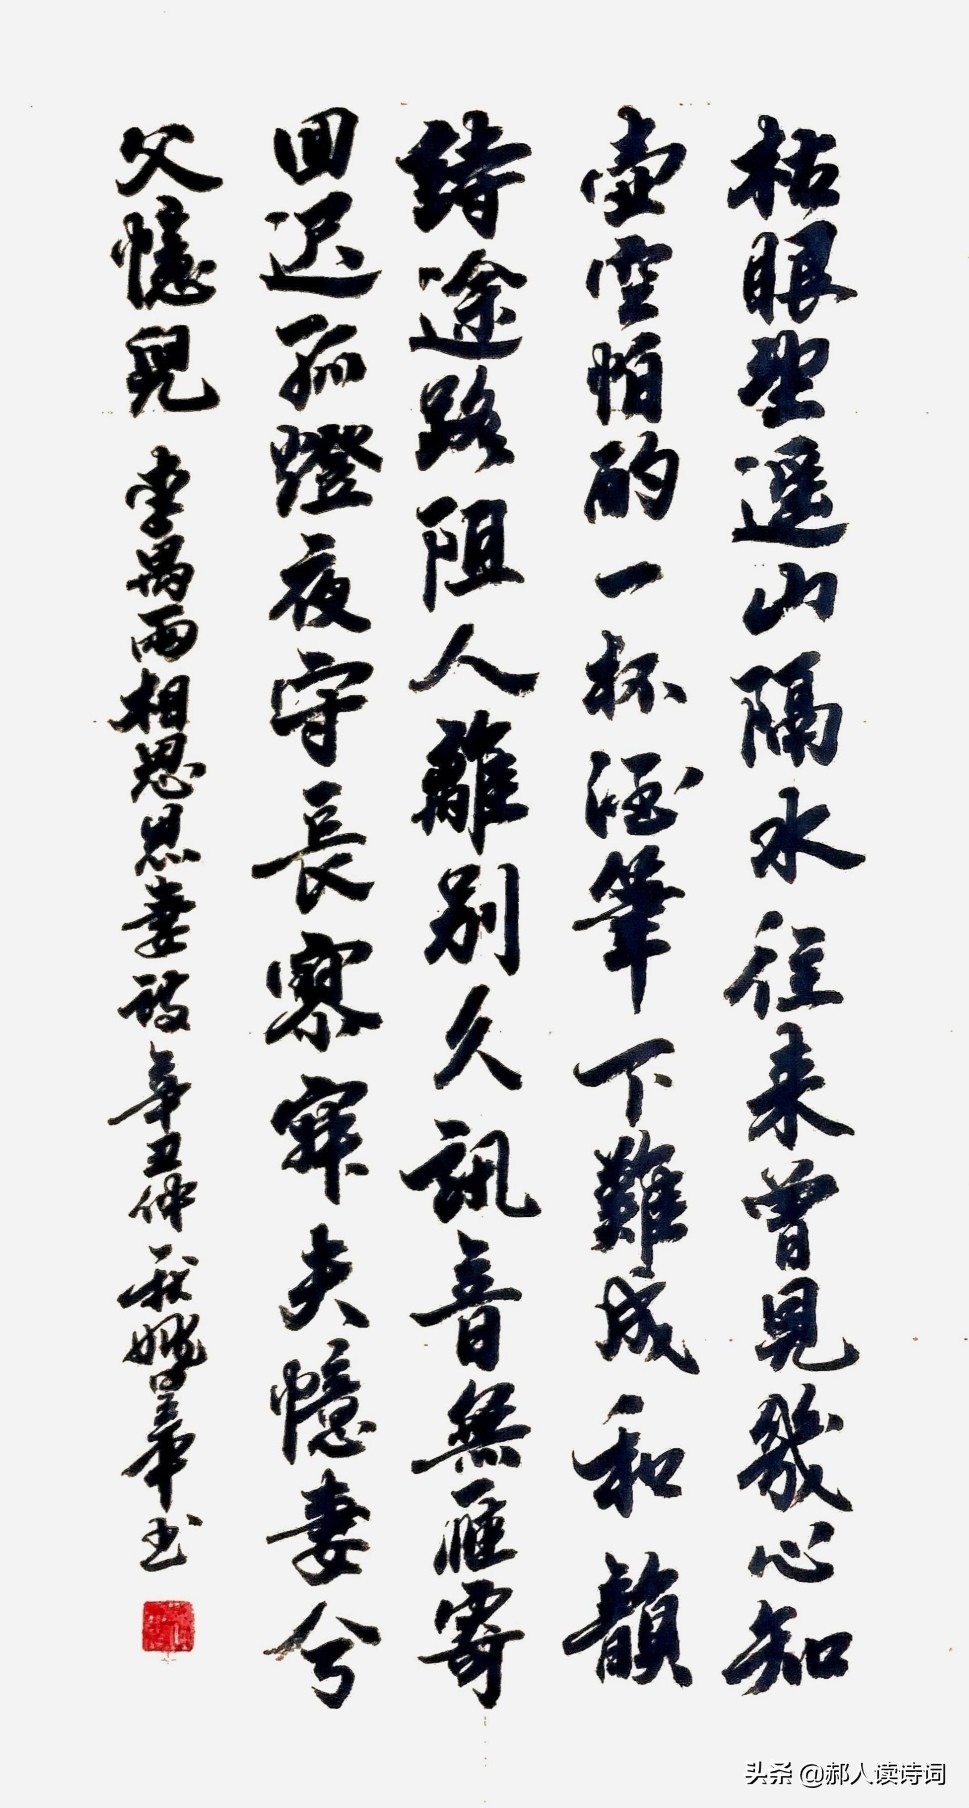 枯眼望遥山隔水往来曾見幾心知
壺空怕酌一杯酒筆下難成和韻
詩途路阻人離别久訊音無雁寄
回迟孤燈夜守長寥寂夫憶妻兮
父憶兒 李禺兩相思思妻詩 辛丑仲秋姚華书
头条 @郝人读诗词